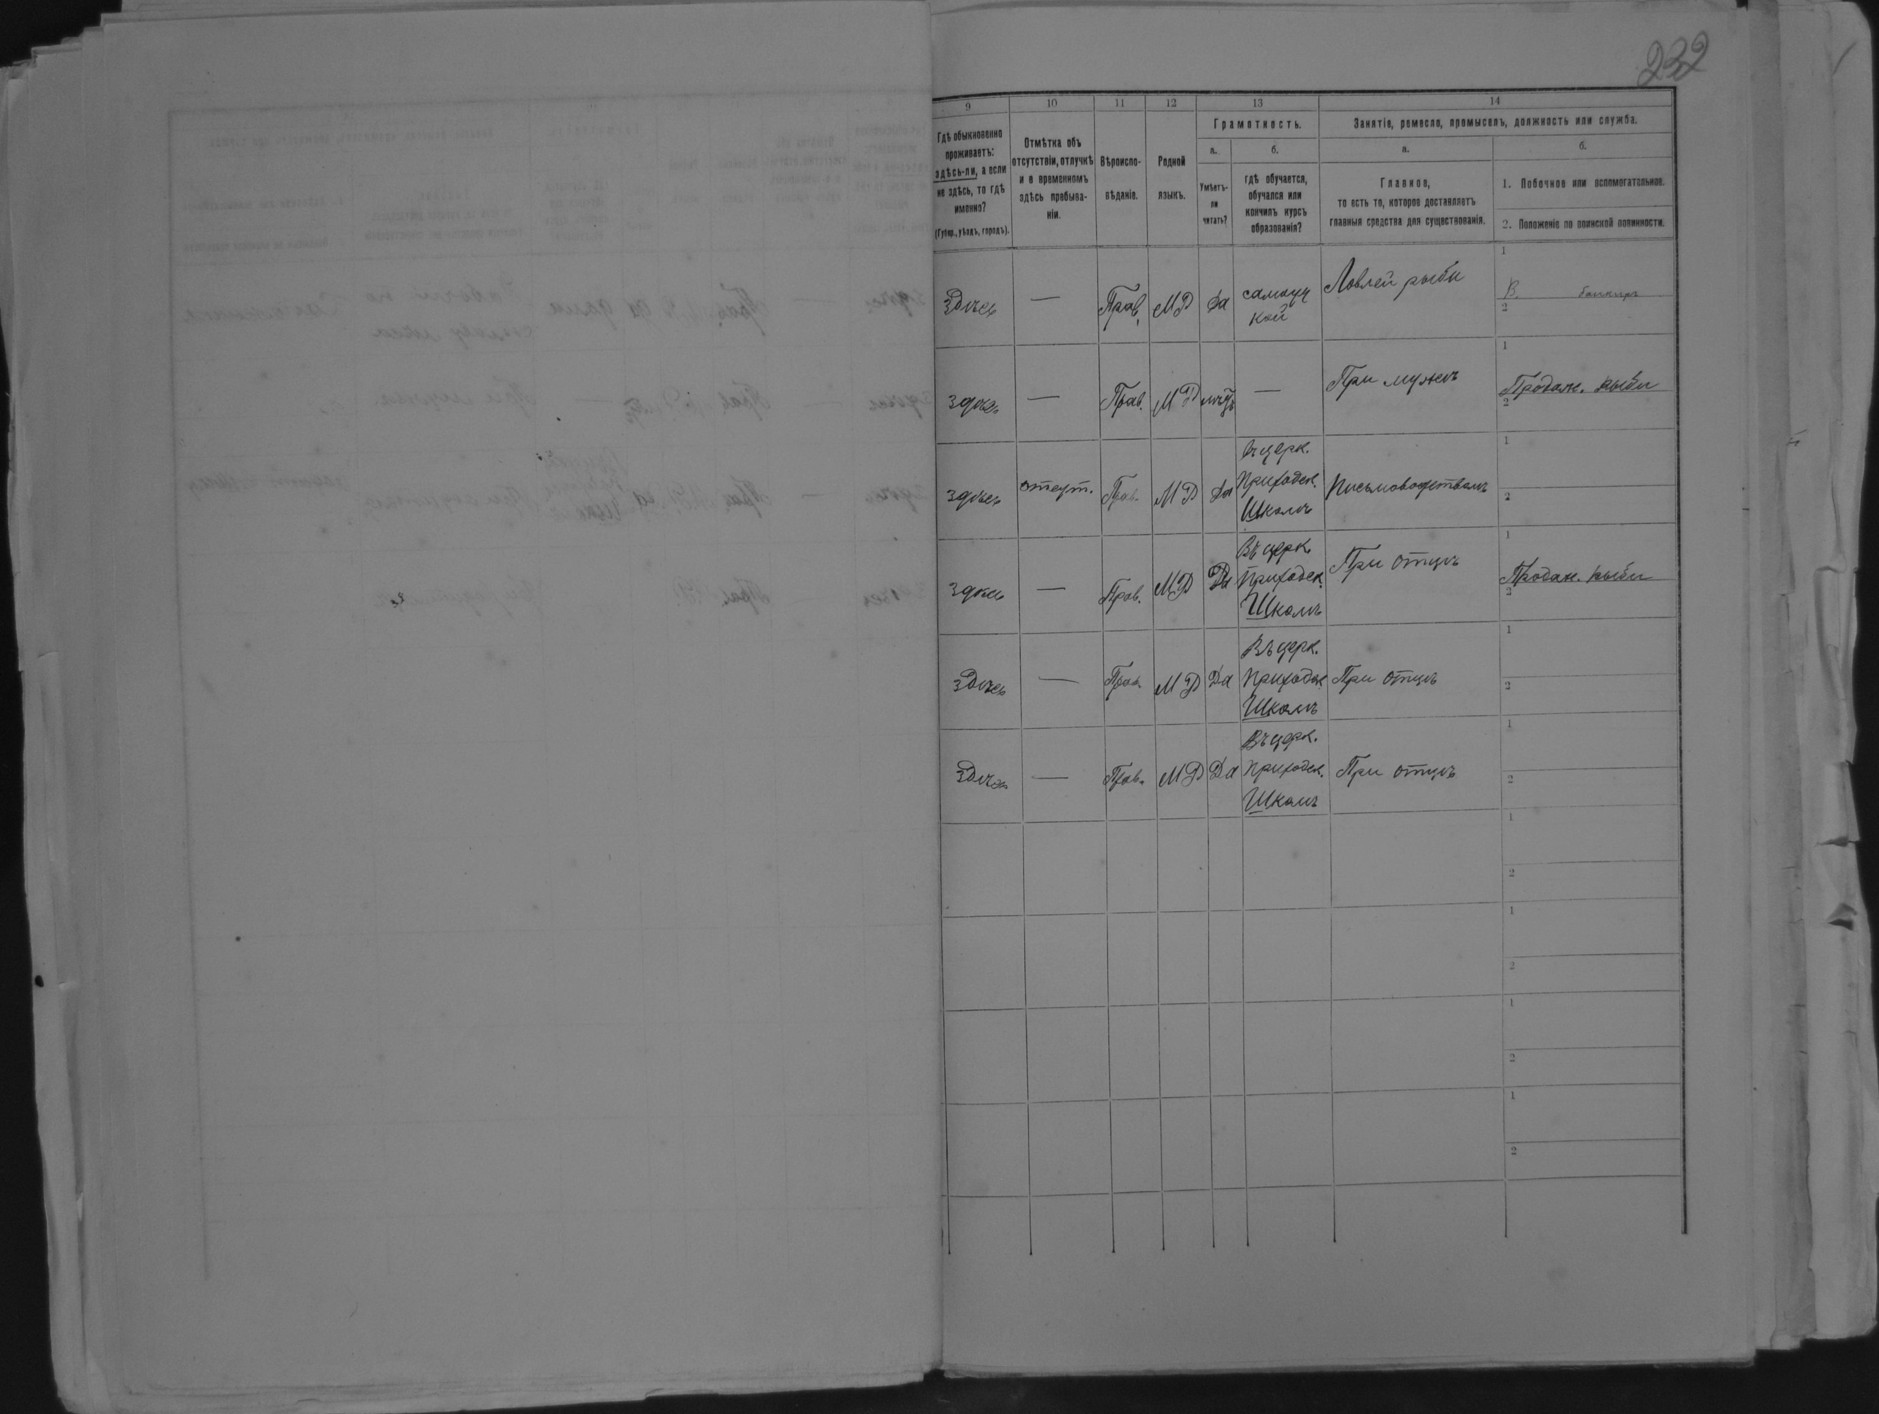 232
9 10 11 12 13 14
Гдѣ обыкновенно
проживаетъ:
здѣсь-ли, а если
не здѣсь, то гдѣ
именно?
(Губер., уѣздъ, городъ).
Отмѣтка объ
отсутствіи, отлучкѣ
и о временномъ
здѣсь пребыва-
ніи.
Вѣроиспо-
вѣданіе.
Родной
языкъ.
Грамотность.
а.
Умѣетъ-
ли
читать?
б.
гдѣ обучается,
обучался или
кончилъ курсъ
образованія?
Занятіе, ремесло, промыселъ, должность или служба.
а.
Главное,
то есть то, которое доставляетъ
главныя средства для существованія.
б.
1. Побочное или вспомогательное.
2. Положеніе по воинской повинности.
1
Здѣсь — Прав. МР Да самоуч
кой
Ловлей рыбы
2
1
здѣсь — Прав. МР нѣтъ — При мужѣ Продаж. рыбы
2
1
Въ церк.
здѣсь отсут. Прав. МР Да Приходск. Письмоводствомъ
Школѣ
2
1
Въ церк.
здѣсь — Прав. МР Да Приходск. При отцѣ Продаж. рыбы
Школѣ
2
1
Въ церк.
здѣсь — Прав. МР Да Приходск. При отцѣ
Школѣ
2
1
Въ церк.
Здѣсь — Прав. МР Да Приходск. При отцѣ
Школѣ
2
1
2
1
2
1
2
1
2